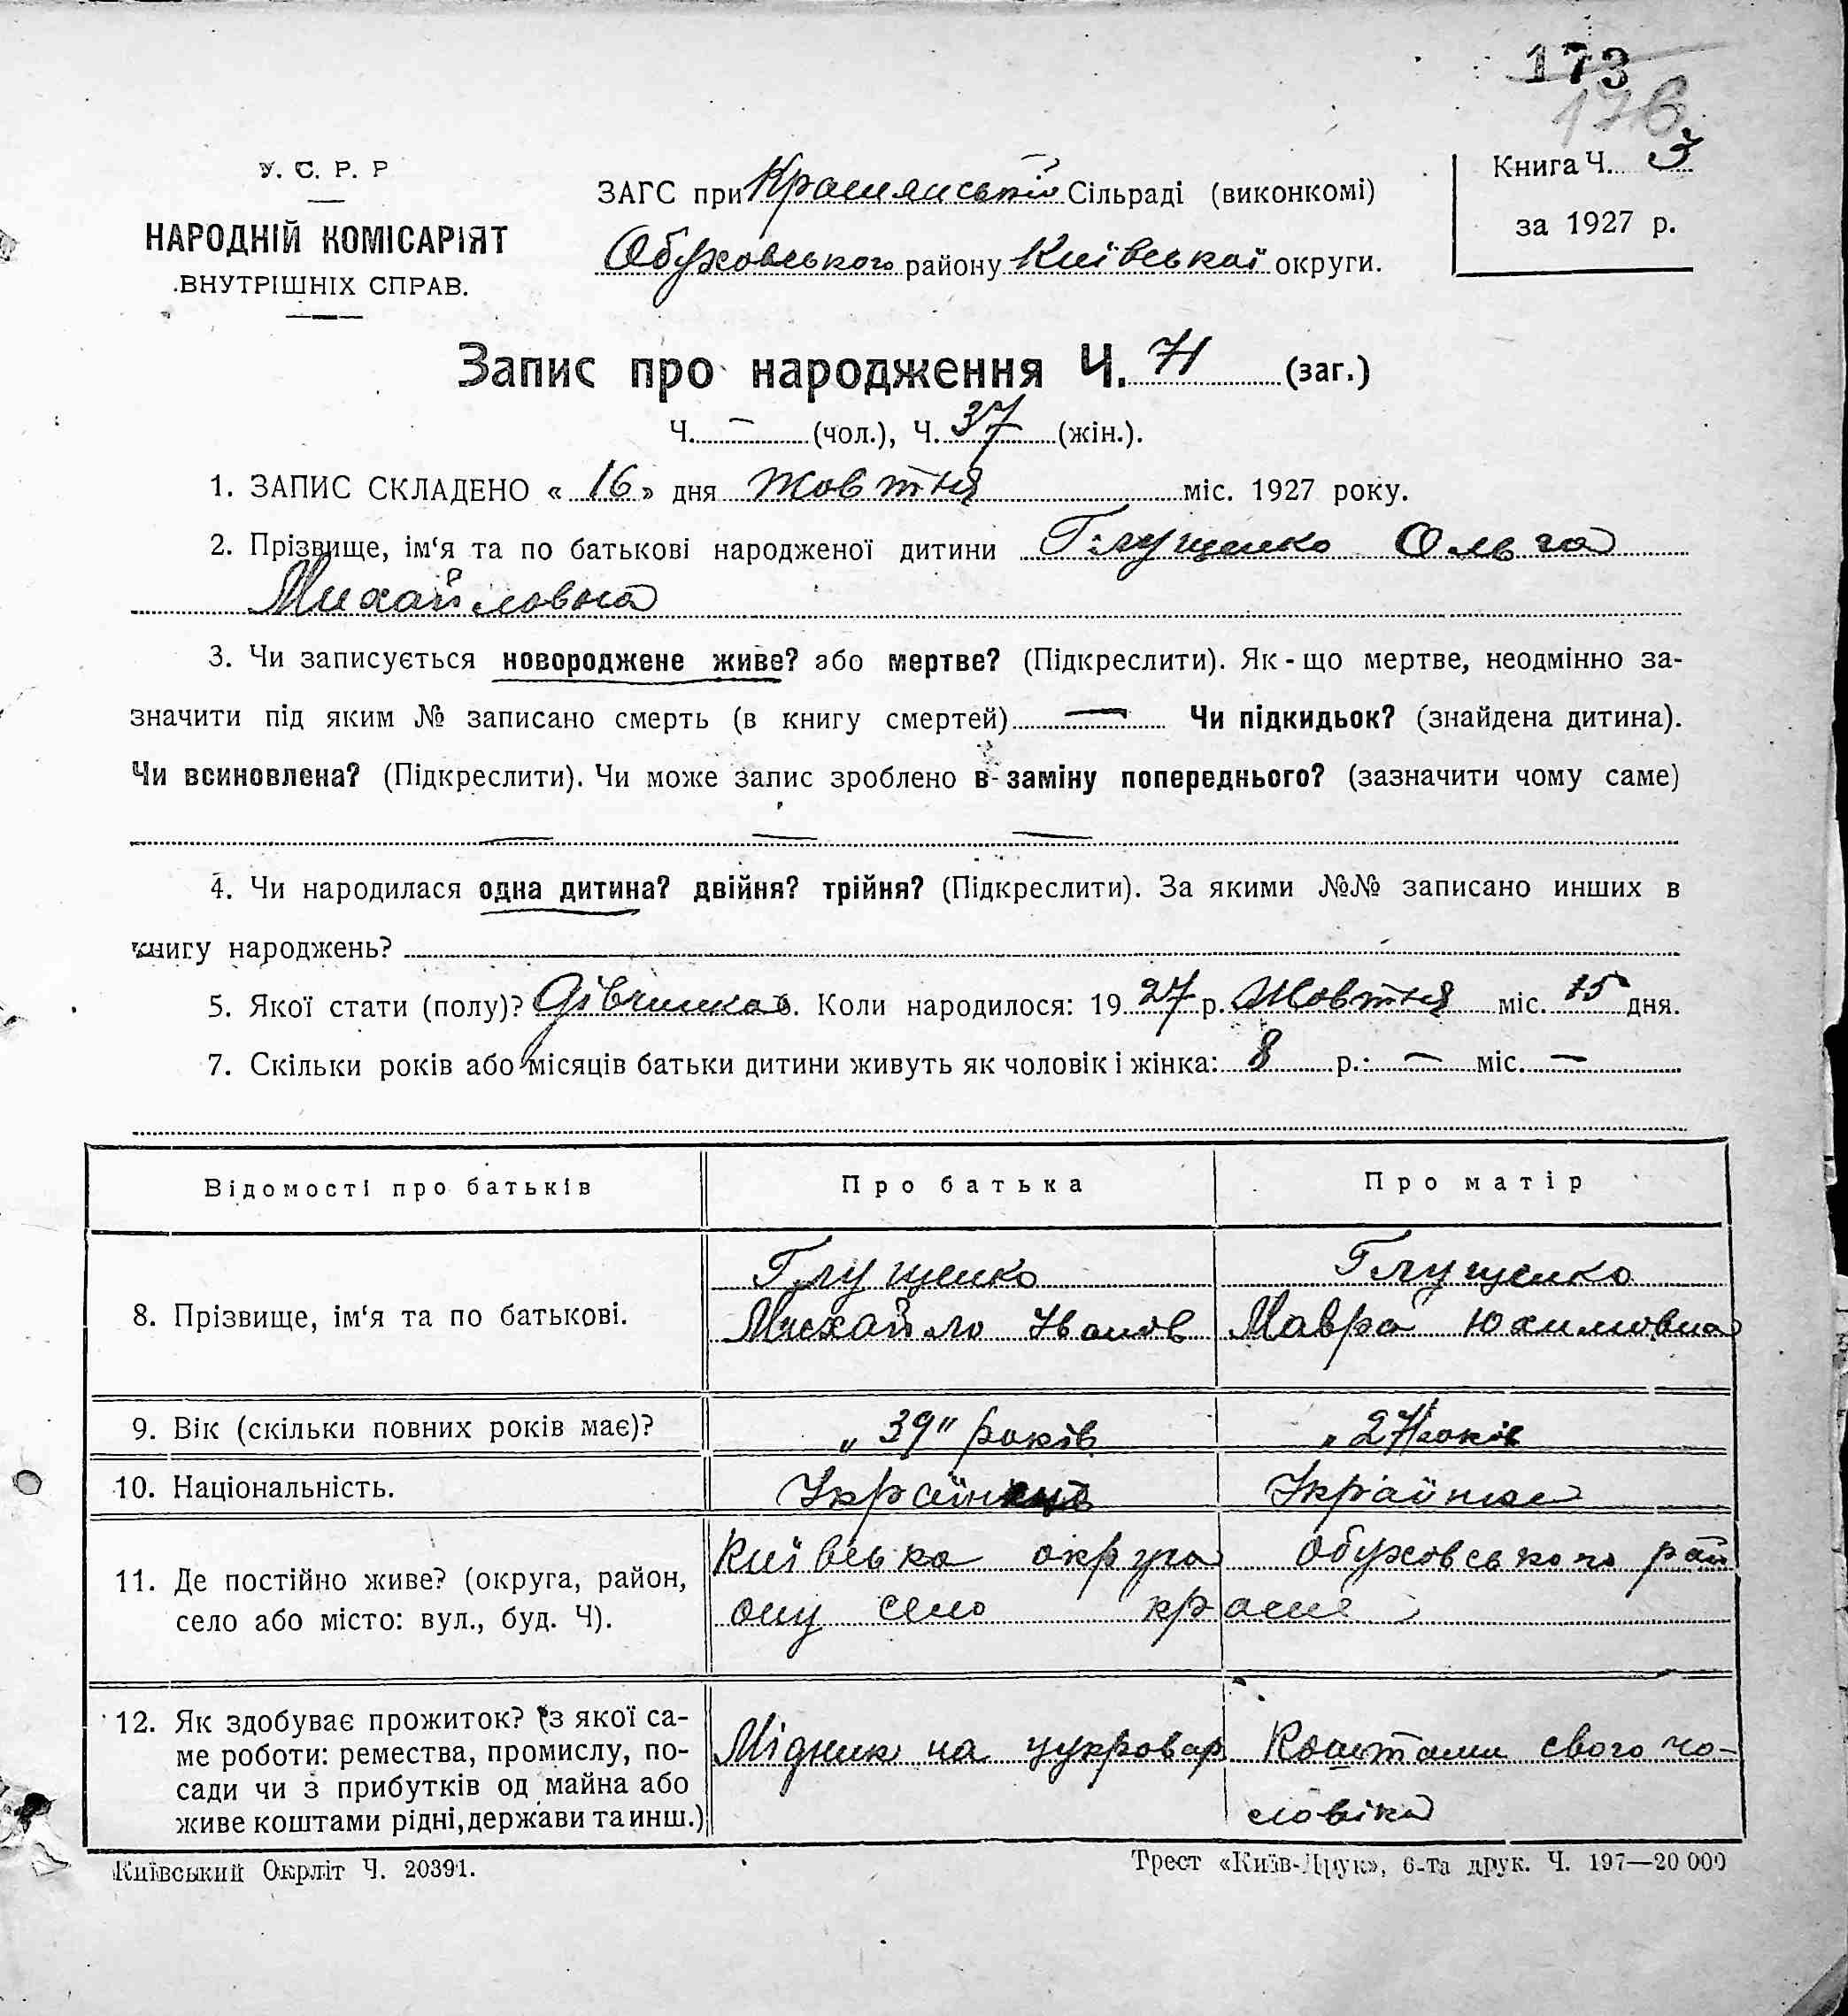 173
176
У. С. Р. Р
НАРОДНІЙ КОМІСАРІЯТ
ВНУТРІШНІХ СПРАВ.
ЗАГС при Краснянській Сільраді (виконкомі)
Обуховського району Київської округи.
Книга Ч. 3
за 1927 р.
Запис про народження Ч. 71 (заг.)
Ч. — (чол.), Ч. 37 (жін.).
1. ЗАПИС СКЛАДЕНО « 16 » дня Жовтня міс. 1927 року.
2. Прізвище, ім‘я та по батькові народженої дитини Глущенко Ольга
Михайловна
3. Чи записується новороджене живе? або мертве? (Підкреслити). Як-що мертве, неодмінно за-
значити під яким № записано смерть (в книгу смертей) — Чи підкидьок? (знайдена дитина).
Чи всиновлена? (Підкреслити). Чи може запис зроблено в заміну попереднього? (зазначити чому саме)
— — —
4. Чи народилася одна дитина? двійня? трійня? (Підкреслити). За якими №№ записано инших в
книгу народжень?
5. Якої стати (полу)? Дівчинка. Коли народилося: 1927 р. Жовтня міс. 15 дня.
7. Скільки років або місяців батьки дитини живуть як чоловік і жінка: 8 р.: — міс. —
Відомості про батьків Про батька Про матір
Глущенко Глущенко
8. Прізвище, ім‘я та по батькові. Михайло Іванов Мавра Юхимовна
9. Вік (скільки повних років має)? „ 39 “ років „ 27 років
10. Національність. Українець Українка
Київська округа Обуховського рай
11. Де постійно живе? (округа, район,
ону село красне
село або місто: вул., буд. Ч).
12. Як здобуває прожиток? (з якої са-
ме роботи: ремества, промислу, по- Мідник на цукровар Коштами свого чо-
сади чи з прибутків од майна або
живе коштами рідні, держави та инш.) ловіка
Київський Окрліт Ч. 20391.
Трест «Київ-Друк», 6-та друк. Ч. 197—20 000